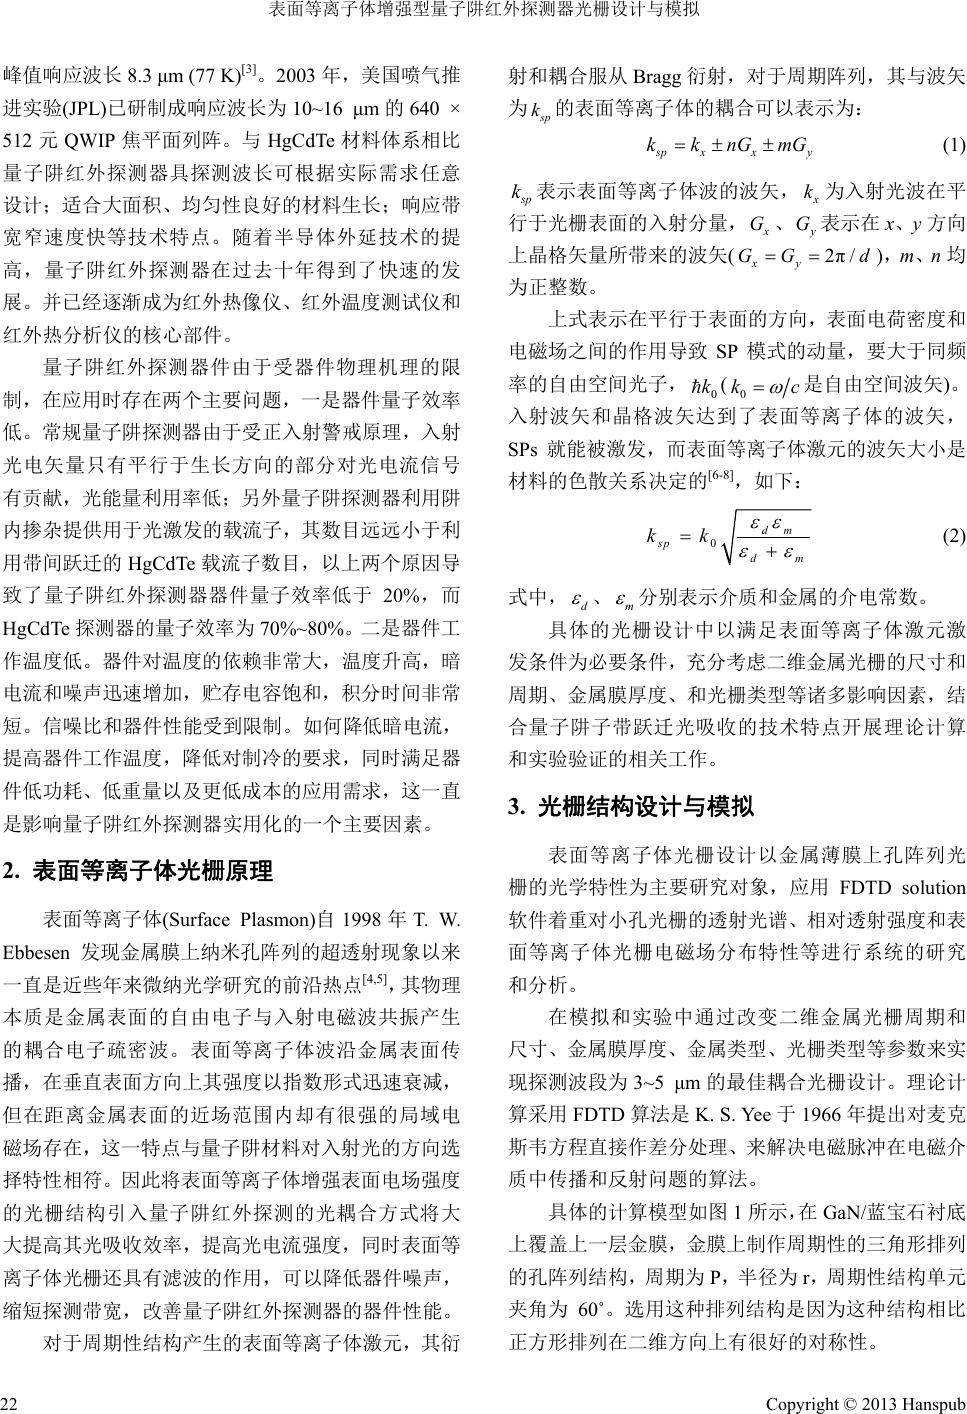 表面等离子体增强型量子阱红外探测器光栅设计与模拟
峰值响应波长 8.3 μm (77 K)[3]。2003 年，美国喷气推
进实验(JPL)已研制成响应波长为 10~16 μm 的 640 ×
512 元 QWIP 焦平面列阵。与 HgCdTe 材料体系相比
量子阱红外探测器具探测波长可根据实际需求任意
设计；适合大面积、均匀性良好的材料生长；响应带
宽窄速度快等技术特点。随着半导体外延技术的提
高，量子阱红外探测器在过去十年得到了快速的发
展。并已经逐渐成为红外热像仪、红外温度测试仪和
红外热分析仪的核心部件。
量子阱红外探测器件由于受器件物理机理的限
制，在应用时存在两个主要问题，一是器件量子效率
低。常规量子阱探测器由于受正入射警戒原理，入射
光电矢量只有平行于生长方向的部分对光电流信号
有贡献，光能量利用率低；另外量子阱探测器利用阱
内掺杂提供用于光激发的载流子，其数目远远小于利
用带间跃迁的 HgCdTe 载流子数目，以上两个原因导
致了量子阱红外探测器器件量子效率低于 20%，而
HgCdTe 探测器的量子效率为 70%~80%。二是器件工
作温度低。器件对温度的依赖非常大，温度升高，暗
电流和噪声迅速增加，贮存电容饱和，积分时间非常
短。信噪比和器件性能受到限制。如何降低暗电流，
提高器件工作温度，降低对制冷的要求，同时满足器
件低功耗、低重量以及更低成本的应用需求，这一直
是影响量子阱红外探测器实用化的一个主要因素。
2. 表面等离子体光栅原理
表面等离子体(Surface Plasmon)自 1998 年 T. W.
Ebbesen 发现金属膜上纳米孔阵列的超透射现象以来
一直是近些年来微纳光学研究的前沿热点[4,5]，其物理
本质是金属表面的自由电子与入射电磁波共振产生
的耦合电子疏密波。表面等离子体波沿金属表面传
播，在垂直表面方向上其强度以指数形式迅速衰减，
但在距离金属表面的近场范围内却有很强的局域电
磁场存在，这一特点与量子阱材料对入射光的方向选
择特性相符。因此将表面等离子体增强表面电场强度
的光栅结构引入量子阱红外探测的光耦合方式将大
大提高其光吸收效率，提高光电流强度，同时表面等
离子体光栅还具有滤波的作用，可以降低器件噪声，
缩短探测带宽，改善量子阱红外探测器的器件性能。
对于周期性结构产生的表面等离子体激元，其衍
射和耦合服从 Bragg 衍射，对于周期阵列，其与波矢
为 k_sp 的表面等离子体的耦合可以表示为：
k_sp = k_x ± nG_x ± mG_y (1)
k_sp 表示表面等离子体波的波矢，k_x 为入射光波在平
行于光栅表面的入射分量，G_x、G_y 表示在 x、y 方向
上晶格矢量所带来的波矢( G_x = G_y = 2π / d )，m、n 均
为正整数。
上式表示在平行于表面的方向，表面电荷密度和
电磁场之间的作用导致 SP 模式的动量，要大于同频
率的自由空间光子，ħk₀ ( k₀ = ω/c 是自由空间波矢)。
入射波矢和晶格波矢达到了表面等离子体的波矢，
SPs 就能被激发，而表面等离子体激元的波矢大小是
材料的色散关系决定的[6-8]，如下：
k_sp = k₀ √(ε_d ε_m / (ε_d + ε_m)) (2)
式中，ε_d、ε_m 分别表示介质和金属的介电常数。
具体的光栅设计中以满足表面等离子体激元激
发条件为必要条件，充分考虑二维金属光栅的尺寸和
周期、金属膜厚度、和光栅类型等诸多影响因素，结
合量子阱子带跃迁光吸收的技术特点开展理论计算
和实验验证的相关工作。
3. 光栅结构设计与模拟
表面等离子体光栅设计以金属薄膜上孔阵列光
栅的光学特性为主要研究对象，应用 FDTD solution
软件着重对小孔光栅的透射光谱、相对透射强度和表
面等离子体光栅电磁场分布特性等进行系统的研究
和分析。
在模拟和实验中通过改变二维金属光栅周期和
尺寸、金属膜厚度、金属类型、光栅类型等参数来实
现探测波段为 3~5 μm 的最佳耦合光栅设计。理论计
算采用 FDTD 算法是 K. S. Yee 于 1966 年提出对麦克
斯韦方程直接作差分处理、来解决电磁脉冲在电磁介
质中传播和反射问题的算法。
具体的计算模型如图 1 所示，在 GaN/蓝宝石衬底
上覆盖上一层金膜，金膜上制作周期性的三角形排列
的孔阵列结构，周期为 P，半径为 r，周期性结构单元
夹角为 60˚。选用这种排列结构是因为这种结构相比
正方形排列在二维方向上有很好的对称性。
22
Copyright © 2013 Hanspub